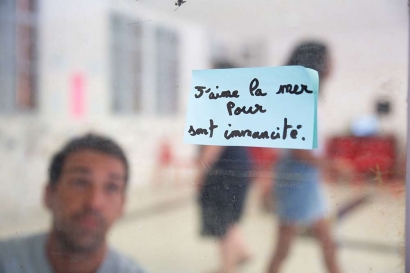 J'aime la mer
Pour
sont immancité.